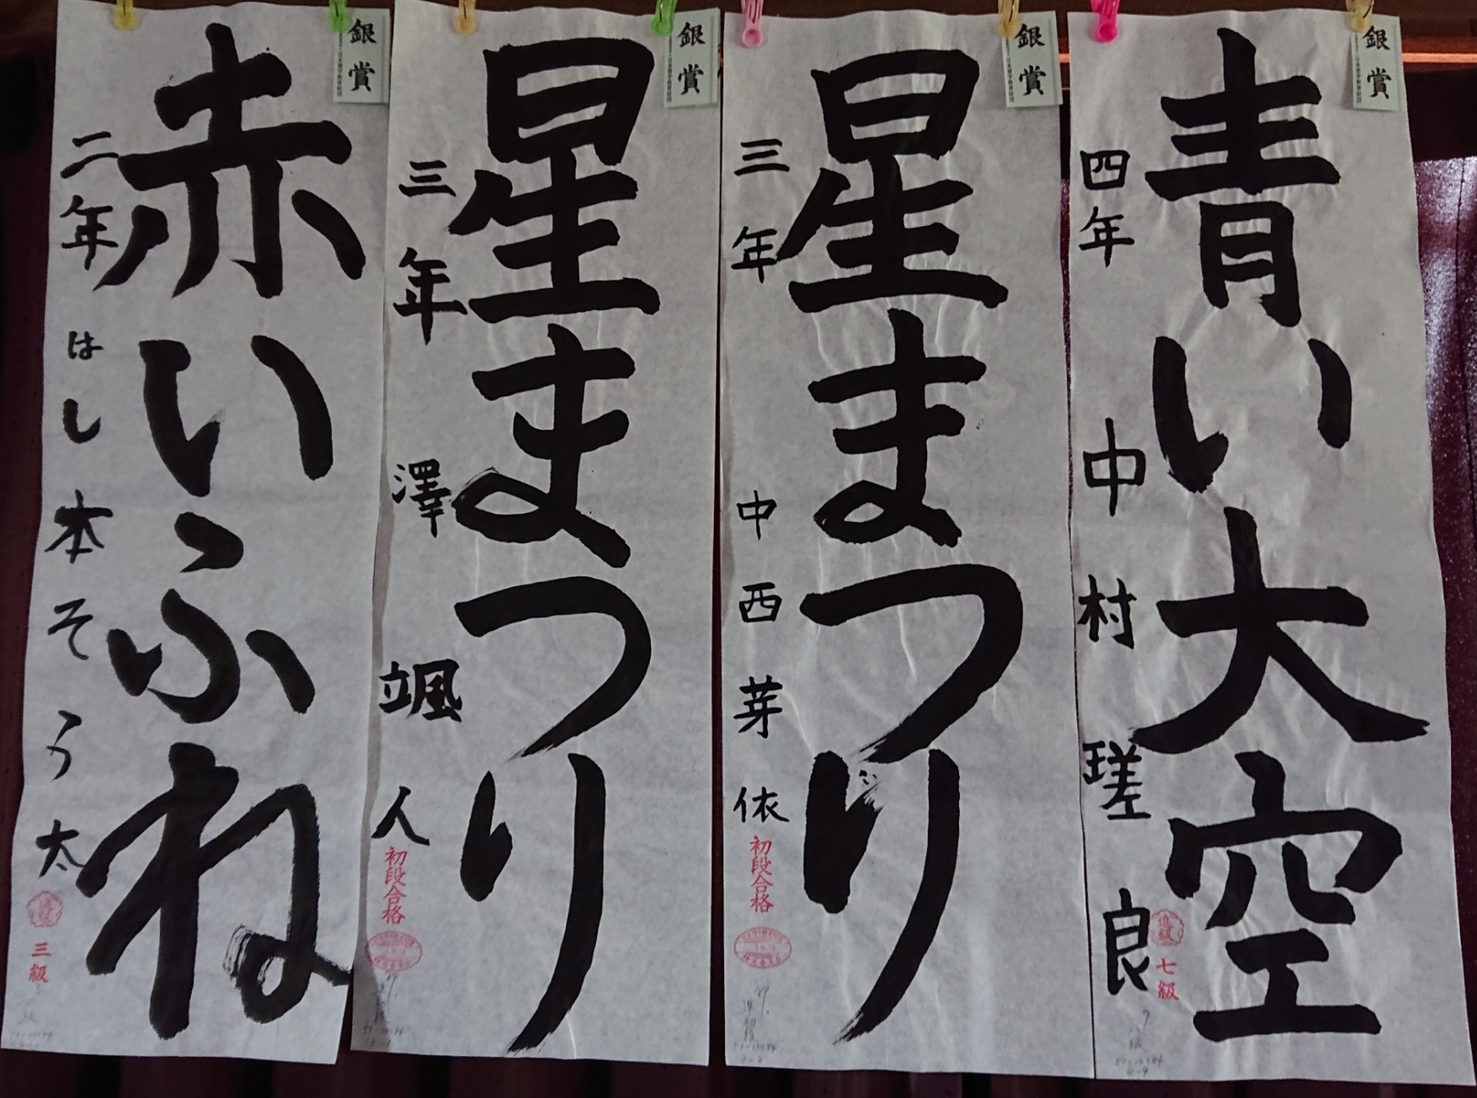 銀賞
青い大空
四年 中村瑳良
七級
銀賞
星まつり
三年 中西芽依
初段合格
銀賞
星まつり
三年 澤颯人
初段合格
銀賞
赤いふね
二年 はし本そう太
三級